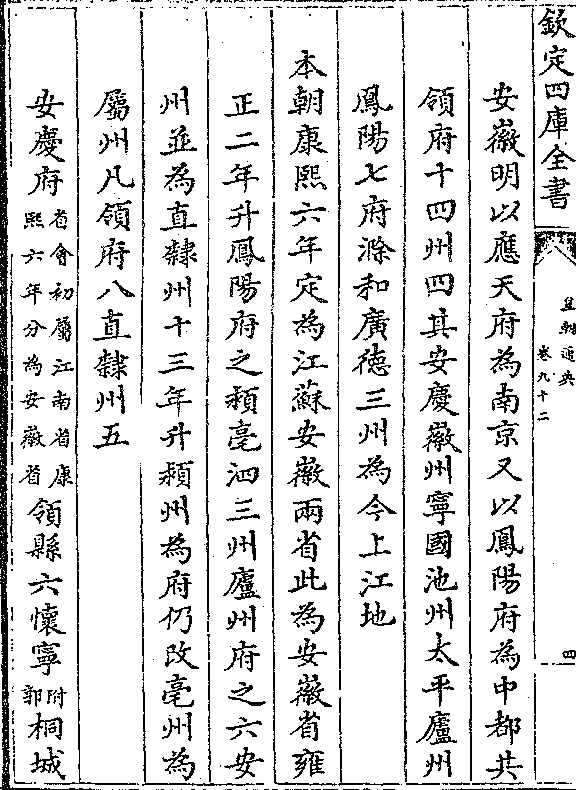 欽定四庫全書
皇朝通典
卷九十二
四
安徽明以應天府為南京又以鳳陽府為中都共
領府十四州四其安慶徽州寧國池州太平廬州
鳳陽七府滁和廣德三州為今上江地
本朝康熙六年定為江蘇安徽兩省此為安徽省雍
正二年升鳳陽府之潁亳泗三州廬州府之六安
州並為直隸州十三年升潁州為府仍改亳州為
屬州凡領府八直隸州五
安慶府省會初屬江南省康熙六年分為安徽省領縣六懷寧附郭桐城